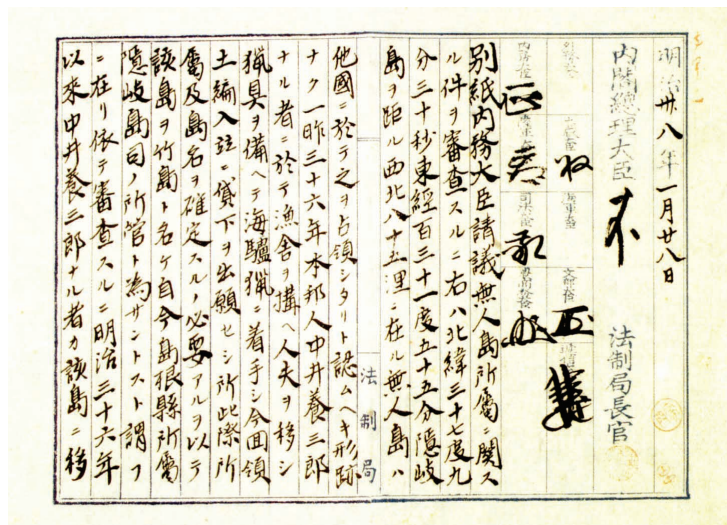 明治卅八年一月廿八日
内閣總理大臣
法制局長官
外務大臣
大藏大臣
海軍大臣
文部大臣
内務大臣
陸軍大臣
司法大臣
別紙内務大臣請議無人島所屬ニ関ス
ル件ヲ審査スルニ右ハ北緯三十七度九
分三十秒東経百三十一度五十五分隠岐
島ヲ距ル西北八十五浬ニ在ル無人島ハ
他國ニ於テ之ヲ占領シタリト認ムヘキ形跡
ナク一昨三十六年本邦人中井養三郎
ナル者ニ於テ漁舎ヲ搆ヘ人夫ヲ移シ
猟具ヲ備ヘテ海驢猟ニ着手シ今回領
土編入並ニ貸下ヲ出願セシ所此際所
屬及島名ヲ確定スルノ必要アルヲ以テ
該島ヲ竹島ト名ケ自今島根縣所屬
隠岐島司ノ所管ト為サントスト謂フ
ニ在リ依テ審査スルニ明治三十六年
以来中井養三郎ナル者カ該島ニ移
法制局